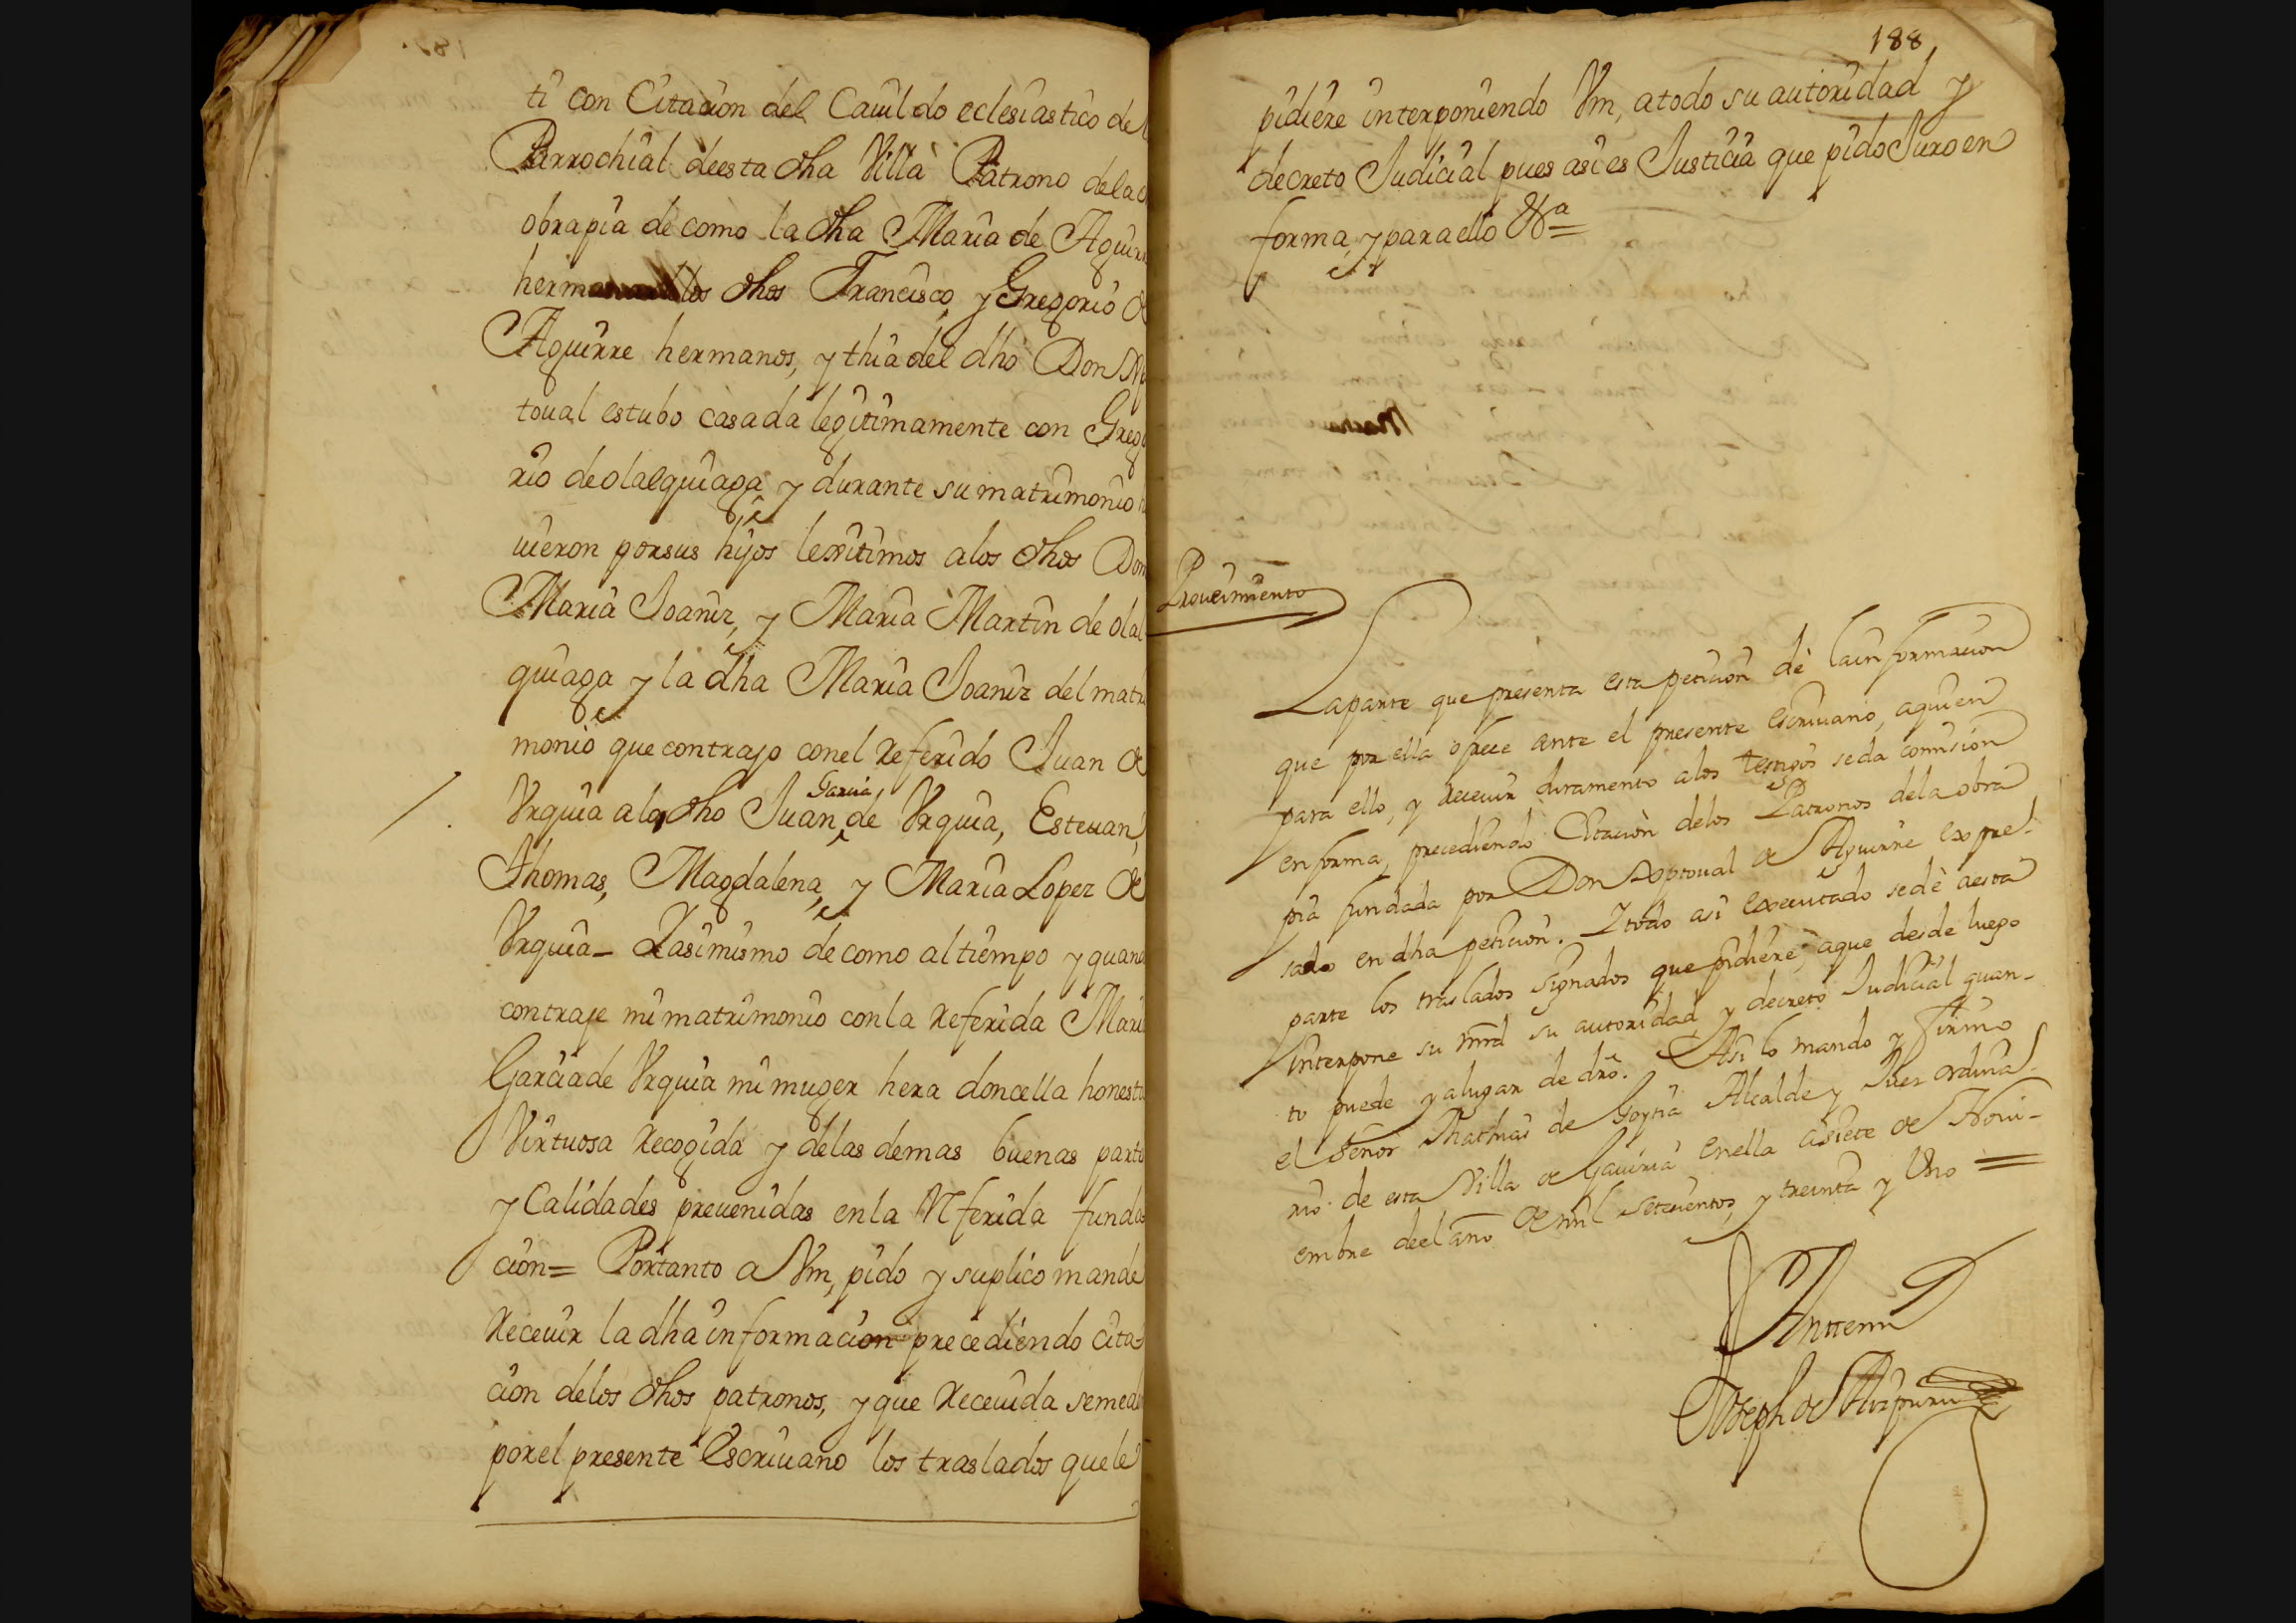 ti con Citacion del Cauildo eclesiastico de l
Parrochial deesta dha Villa Patrono dela d
obrapia de como la dha Maria de Aguirre
herm los dhos Francisco, y Gregorio de
Aguirre hermanos, y thia del dho Don Xp
toual estubo casada legitimamente con Grego
rio deolalquiaga, y durante su matrimonio
uieron porsus hijos lexitimos alos dhos Don
Maria Joaniz, y Maria Martin de olal
quiaga y la dha Maria Joaniz del matri
monio que contrajo conel Referido Juan de
Garcia
Vrquia ala dho Juan de Vrquia, Esteuan,
Thomas, Magdalena, y Maria Lopez de
Vrquia_ Yasimismo de como altiempo y quand
contraje mi matrimonio conla Referida Mari
Garciade Vrquia mi muger hera doncella honesta
Virtuosa Recogida y delas demas buenas parte
y Calidades preuenidas enla Referida funda
cion= Portanto a Vm, pido y suplico mande
Receuir la dha informacion precediendo cita-
cion delos dhos patronos, y que Receuida semede
porel presente Escriuano los traslados quele
188
pidiere interponiendo Vm, atodo su autoridad y
decreto Judicial pues asi es Justicia que pido Juro en
forma, y para ello &a=
Proueimiento
Laparte que presenta esta peticion dè lainformacion
que por ella ofrece ante el presente escriuano, aquien
para ello, y Receuir Juramento alos testigos seda comision
enforma, precediendo Citacion delos Patronos dela obra
pia fundada por Don Xptoual de Aguirre expre-
sado en dha peticion. Ytodo asi executado sedè aesta
parte los traslados signados que pidiere, aque desde luego
interpone su mrd su autoridad, y decreto Judicial quan-
to puede yalugar de dro. Asi lo mando y firmo
el señor Mathias de Goytia Alcalde y Juez ordina-
rio de esta Villa de Gauiria enella asiete de Noui-
embre deel año de mil setecientos, y treinta y Vno =
Anttemi
Joseph de Aizpuru